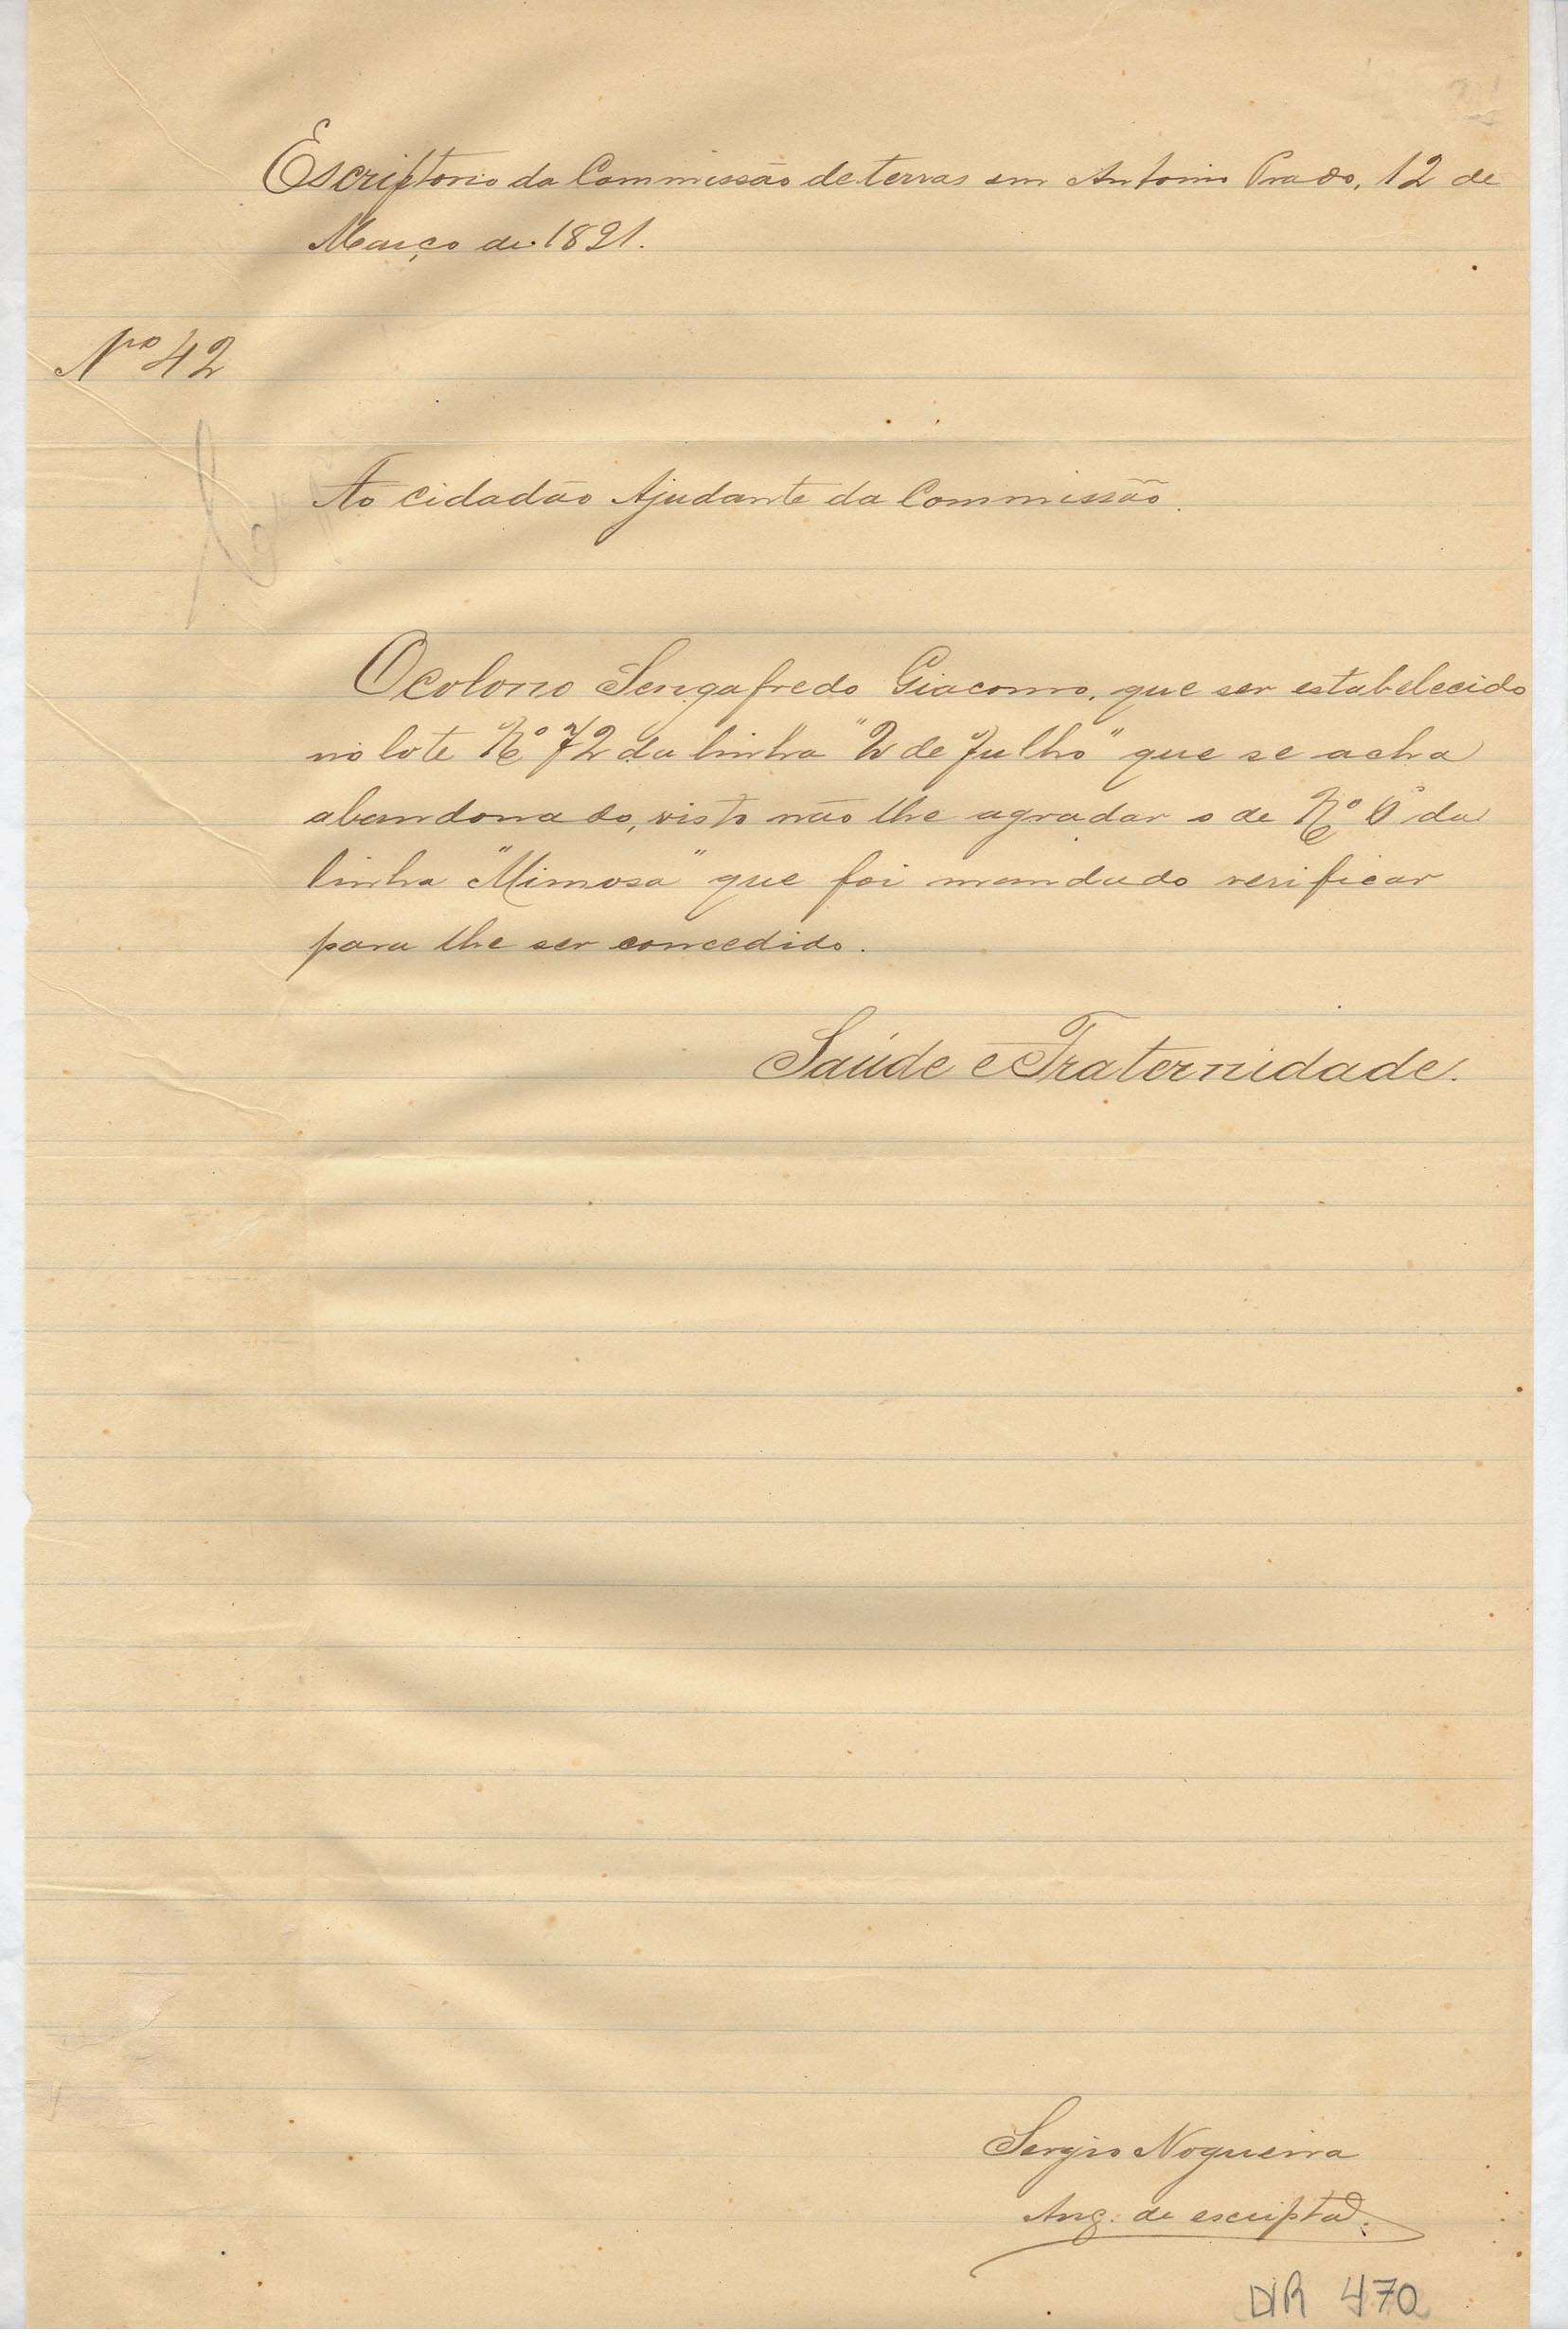 Escriptorio da Commissão de terras em Antonio Prado, 12 de
Março de 1891.
Nº 42
Ao cidadão Ajudante da Commissão.
O colono Sengafredo Giacomo, que ser estabelecido
no lote Nº 72 da linha "2 de Julho" que se acha
abandonado, visto não lhe agradar o de Nº 6 da
linha "Mimosa" que foi mandado verificar
para lhe ser concedido.
Saúde e Fraternidade.
Sergio Nogueira
Enc. de escripta.
DIR 470